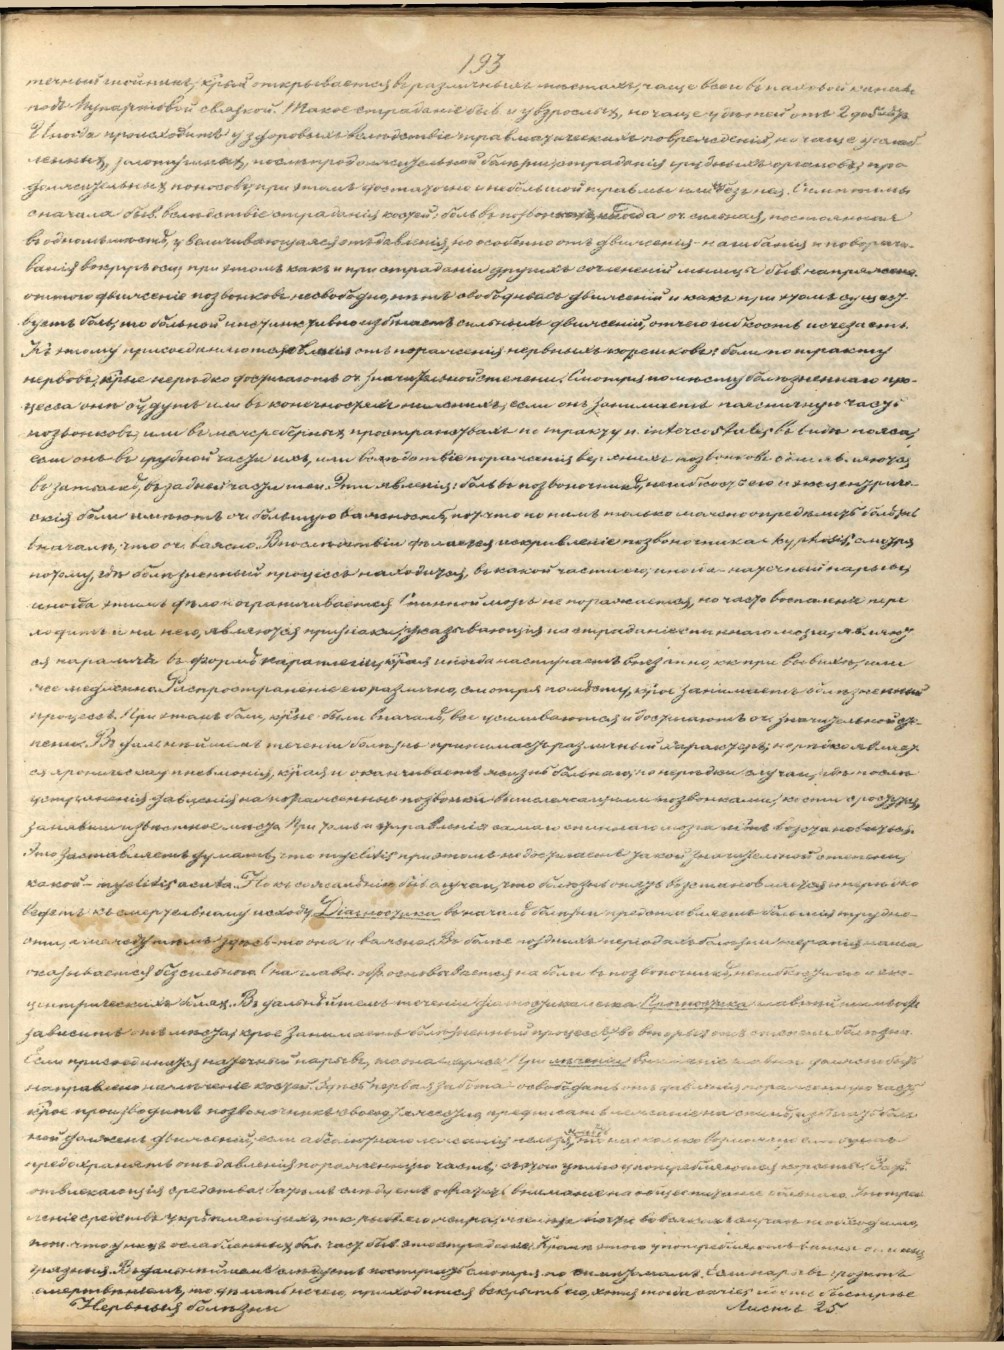 193
течный нарывъ, кр̃ый открывается въ различныхъ мѣстахъ, чаще всего въ паховой канавѣ
подъ Пупартовой связкой. Такое страданіе быв. и у взрослыхъ, но чаще у дѣтей отъ 2 до
Иногда происходитъ у здоровыхъ вслѣдствіе травматическихъ поврежденій, но чаще у ослаб-
ленныхъ, послѣ продолжительной болѣзни, страданія грудныхъ органовъ, про-
должительныхъ поносовъ, при этомъ достаточно и небольшой травмы или безъ нея. Симптомы
сначала быв. вслѣдствіе страданія костей: боль въ позвонкахъ, иногда оч. сильная, постоянная
въ одномъ мѣстѣ, увеличивающаяся отъ давленія, но особенно отъ движенія - нагибанія и поворачи-
ванія вокругъ оси, при этомъ какъ и при страданіи другихъ сочлененій мышцы быв. напряжены
отъ этого движеніе позвонковъ несвободно, нѣтъ свободныхъ движеній и какъ при этомъ сущест-
вуетъ боль, то больной инстинктивно избѣгаетъ сильныхъ движеній, отчего гибкость исчезаетъ.
Къ этому присоединяются явленія отъ пораженія нервныхъ корешковъ: боли по тракту
нервовъ, кр̃ые нерѣдко достигаютъ оч. значительной степени. Смотря по мѣсту болѣзненнаго про-
цесса онѣ будутъ или въ конечностяхъ нижнихъ, если онъ занимаетъ поясничную часть
позвонковъ, или въ межреберныхъ пространствахъ по тракту n. intercostalis въ видѣ пояса,
если онъ въ грудной части ихъ, или вслѣдствіе пораженія верхнихъ позвонковъ боли являются
въ затылкѣ, въ задней части шеи. Эти явленія: боль въ позвоночникѣ, негибкость его и эксцентриче-
скія боли имѣютъ оч. большую важность, пот. что по нимъ только можно опредѣлить болѣзнь
вначалѣ, что оч. важно. Впослѣдствіи дѣлается искривленіе позвоночника - kyphosis, смотря
потому, гдѣ болѣзненный процессъ находится, въ какой части его; иногда - натечный нарывъ,
иногда этимъ дѣло и ограничивается. Спинной мозгъ не поражается, но часто воспаленіе пере-
ходитъ и на него, являются признаки, указывающія на страданіе спиннаго мозга, являют-
ся параличъ въ формѣ параплегіи, кр̃ая иногда наступаетъ внезапно, какъ при вывихѣ, или
же медленно. Распространеніе его различно, смотря по мѣсту, кр̃ое занимаетъ болѣзненный
процессъ. При этомъ боли, кр̃ые были вначалѣ, все усиливаются и достигаютъ оч. значительной сте-
пени. Въ дальнѣйшемъ теченіи болѣзнь принимаетъ различный характеръ; нерѣдко являет-
ся хроническая пневмонія, кр̃ая и оканчиваетъ жизнь больнаго, но нерѣдки случаи, гдѣ послѣ
устраненія давленія на пораженные позвонки вышележащими позвонками, кости сростутся,
занявши извѣстное мѣсто. При томъ и отправленія самаго спиннаго мозга
Это заставляетъ думать, что myelitis при этомъ не достигаетъ такой значительной степени,
какой - myelitis acuta. Но къ сожалѣнію быв. случаи, что болѣзнь опять возстановляется и нерѣдко
ведетъ къ смертельному исходу. Діагностика въ началѣ болѣзни представляетъ большія трудно-
сти, а между тѣмъ здѣсь-то она и важна. Въ болѣе позднихъ періодахъ болѣзни терапія наша
оказывается безсильною. Она главн. обр. основывается на боли въ позвоночникѣ, негибкости его и экс-
центрическихъ боляхъ. Въ дальнѣйшемъ теченіи діагностика легка. Прогностика главнымъ обр.
зависитъ отъ мѣста, кр̃ое занимаетъ болѣзненный процессъ, во вторыхъ отъ степени болѣзни.
Если присоединится натечный нарывъ, то она хуже. При леченіи вниманіе главн. должно быть
направлено на леченіе костей. Здѣсь первая забота - освободить отъ давленія пораженную часть,
кр̃ое производитъ позвоночникъ своею тяжестью, предписать лежаніе на спинѣ, избѣгать боль-
ной долженъ движеній, если абсолютнаго лежанія нельзя, то надо насколько возможно
предохранять отъ давленія пораженную часть; съ этою цѣлію употребляются корсеты. Затѣмъ
отвлекающія средства. Затѣмъ слѣдуетъ обратить вниманіе на общее питаніе больнаго. Употреб-
леніе средствъ укрѣпляющихъ, т.к. рыбьяго жира, желѣза почти во всякомъ случаѣ необходимо,
пот. что у лицъ ослабленныхъ быв. страданіе. Кромѣ этого употребляютъ ванны
грязныя. Въ дальнѣйшемъ слѣдуетъ поступать смотря по симптомамъ. Если нарывъ грозитъ
омертвѣніемъ, то дѣлать нечего, приходится вскрыть его, хотя тогда caries идетъ быстрѣе
Нервныя болѣзни
Листъ 25